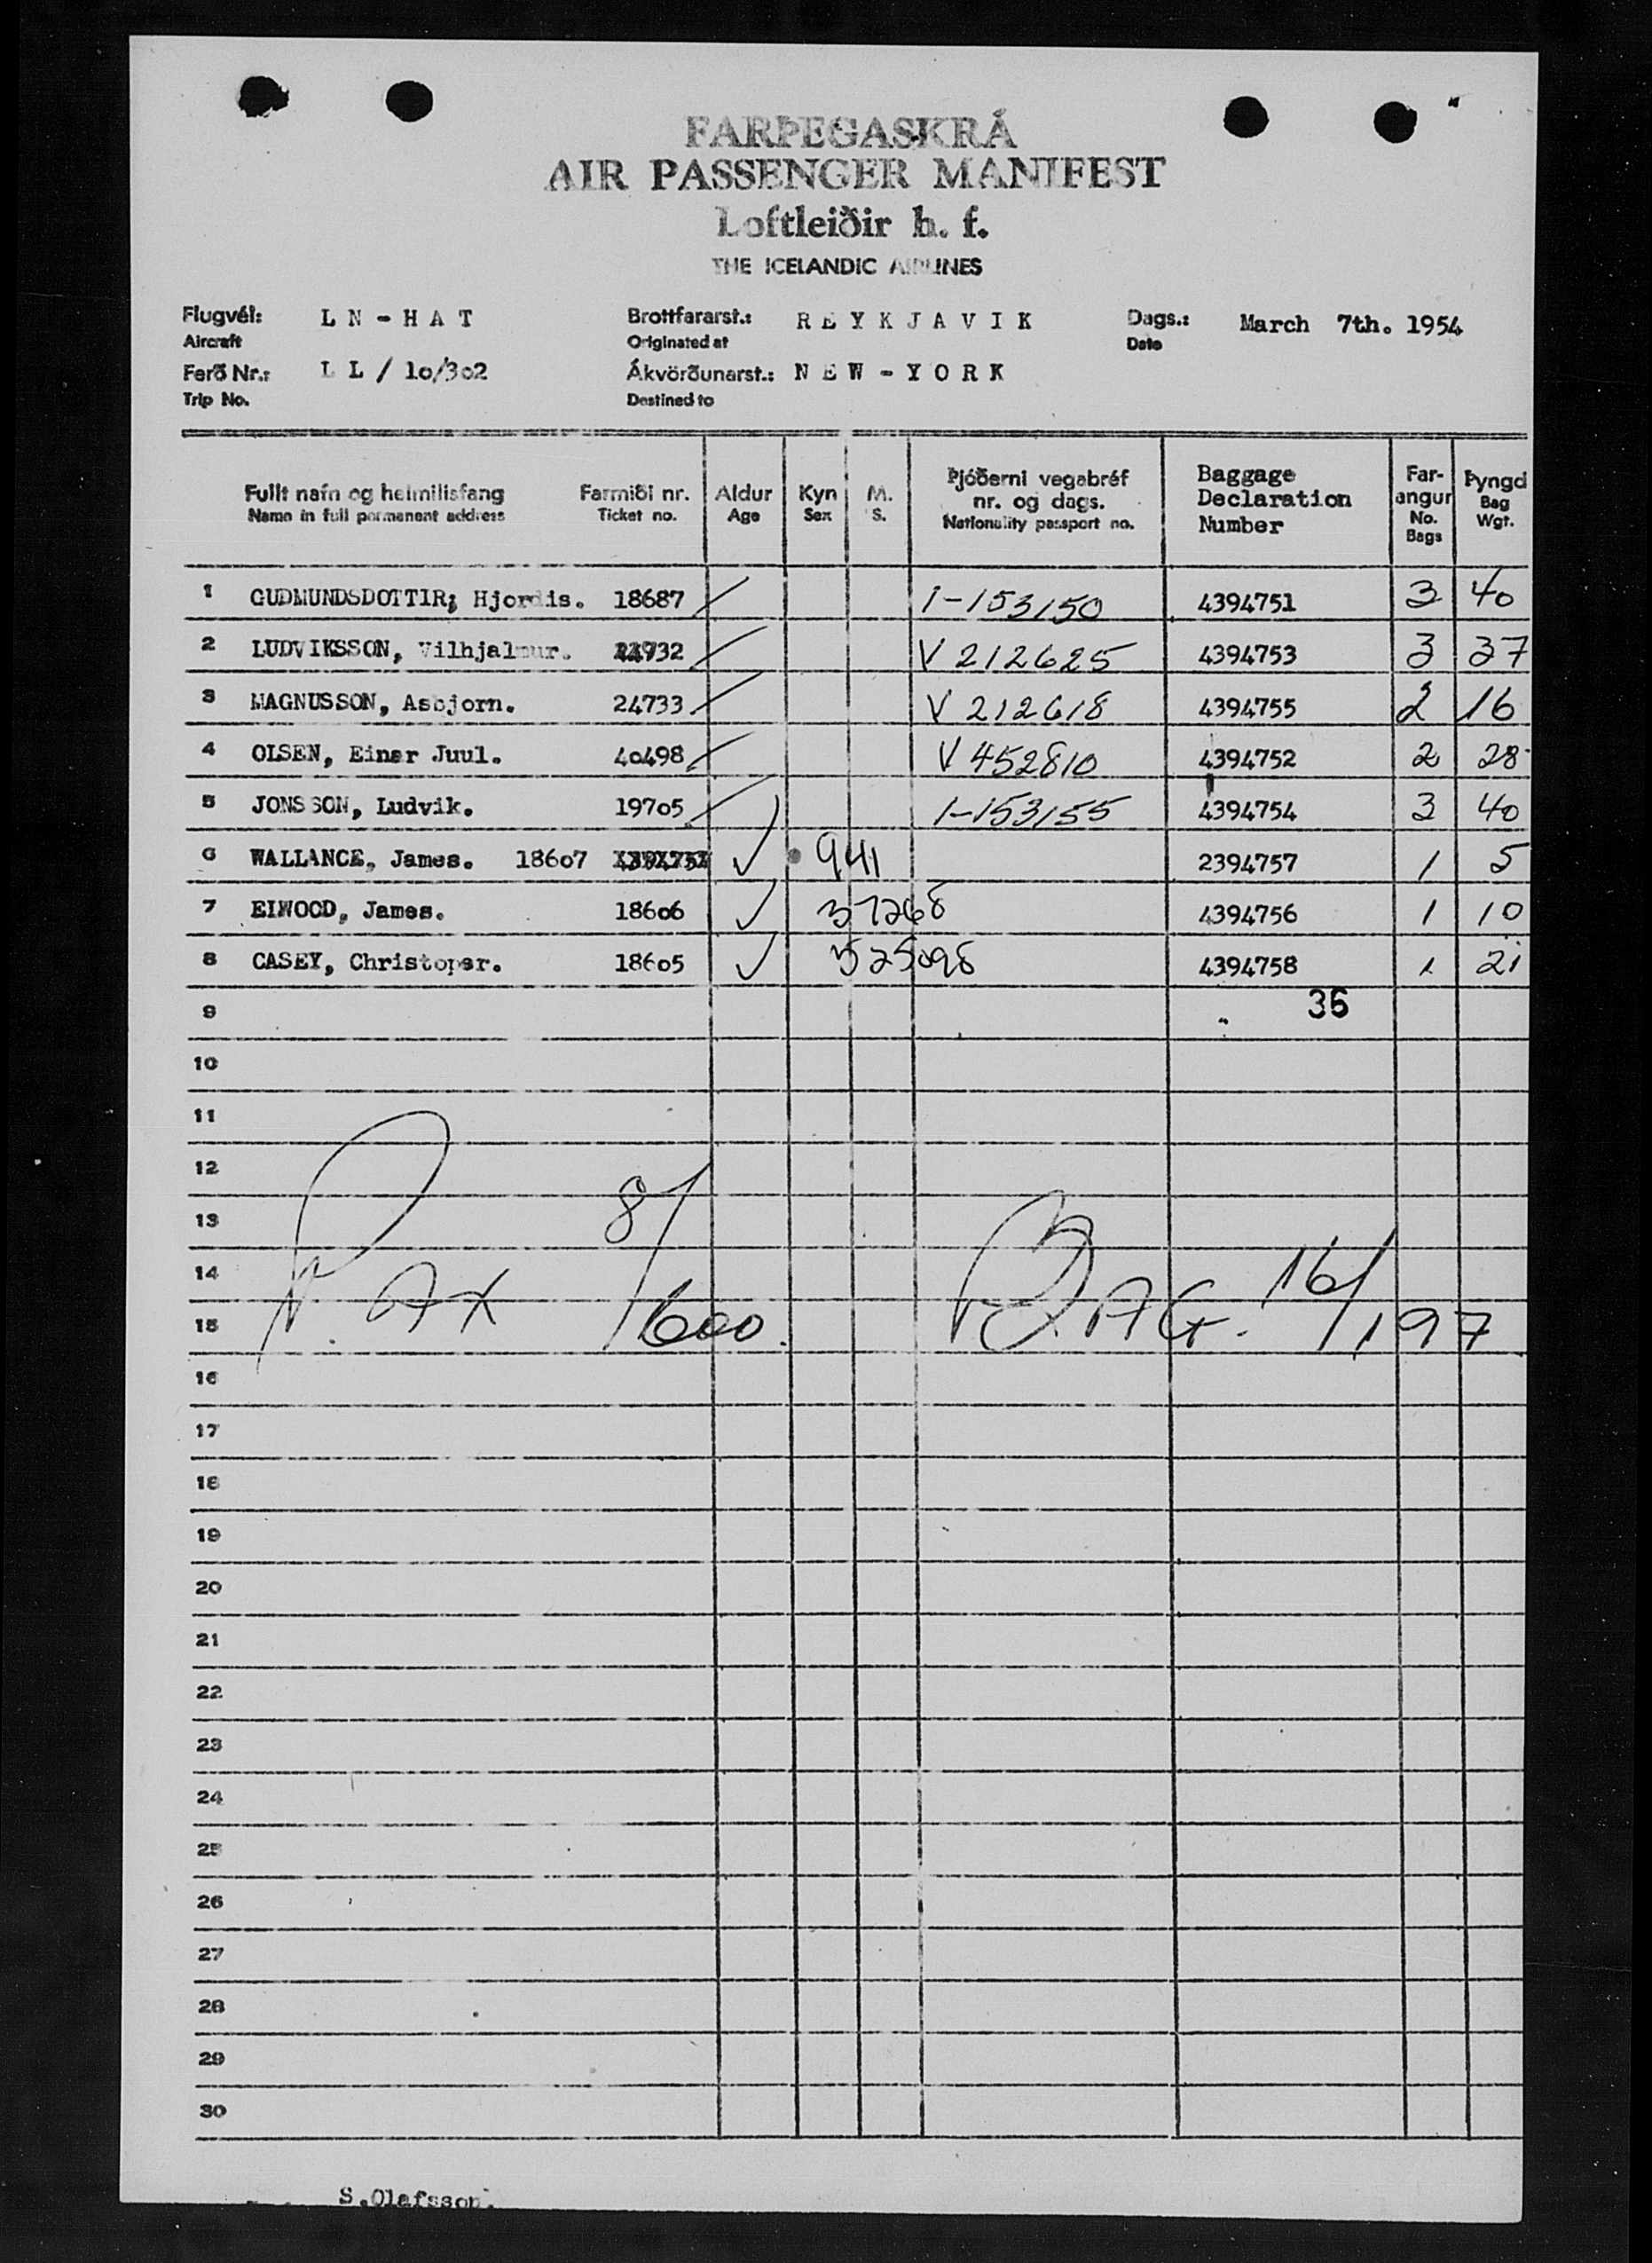 FARÞEGASKRÁ
AIR PASSENGER MANIFEST
Loftleiðir h. f.
THE ICELANDIC AIRLINES
Flugvél: LN-HAT Brottfararst.: REYKJAVIK Dags.: March 7th. 1954
Aircraft Originated at Date
Ferð Nr.: LL/10/302 Ákvörðunarst.: NEW-YORK
Trip No. Destined to
Fullt nafn og heimilisfang Farmiði nr. Aldur Kyn M. Þjóðerni vegabréf nr. og dags. Baggage Declaration Number Farangur Þyngd
Name in full permanent address Ticket no. Age Sex S. Nationality passport no. No. Bags Bag Wgt.
1 GUDMUNDSDOTTIR; Hjordis. 18687 I-153150 4394751 3 40
2 LUDVIKSSON, Vilhjalmur. 24732 V 212625 4394753 3 37
3 MAGNUSSON, Asbjorn. 24733 V 212618 4394755 2 16
4 OLSEN, Einar Juul. 40498 V 452810 4394752 2 28
5 JONSSON, Ludvik. 19705 I-153155 4394754 3 40
6 WALLANCE, James. 18607 941 2394757 1 5
7 ELWOOD, James. 18606 37268 4394756 1 10
8 CASEY, Christoper. 18605 525098 4394758 1 21
9 36
10
11
12
13
14
15
PAX 8/600. BAG. 16/197
16
17
18
19
20
21
22
23
24
25
26
27
28
29
30
S.Olafsson.